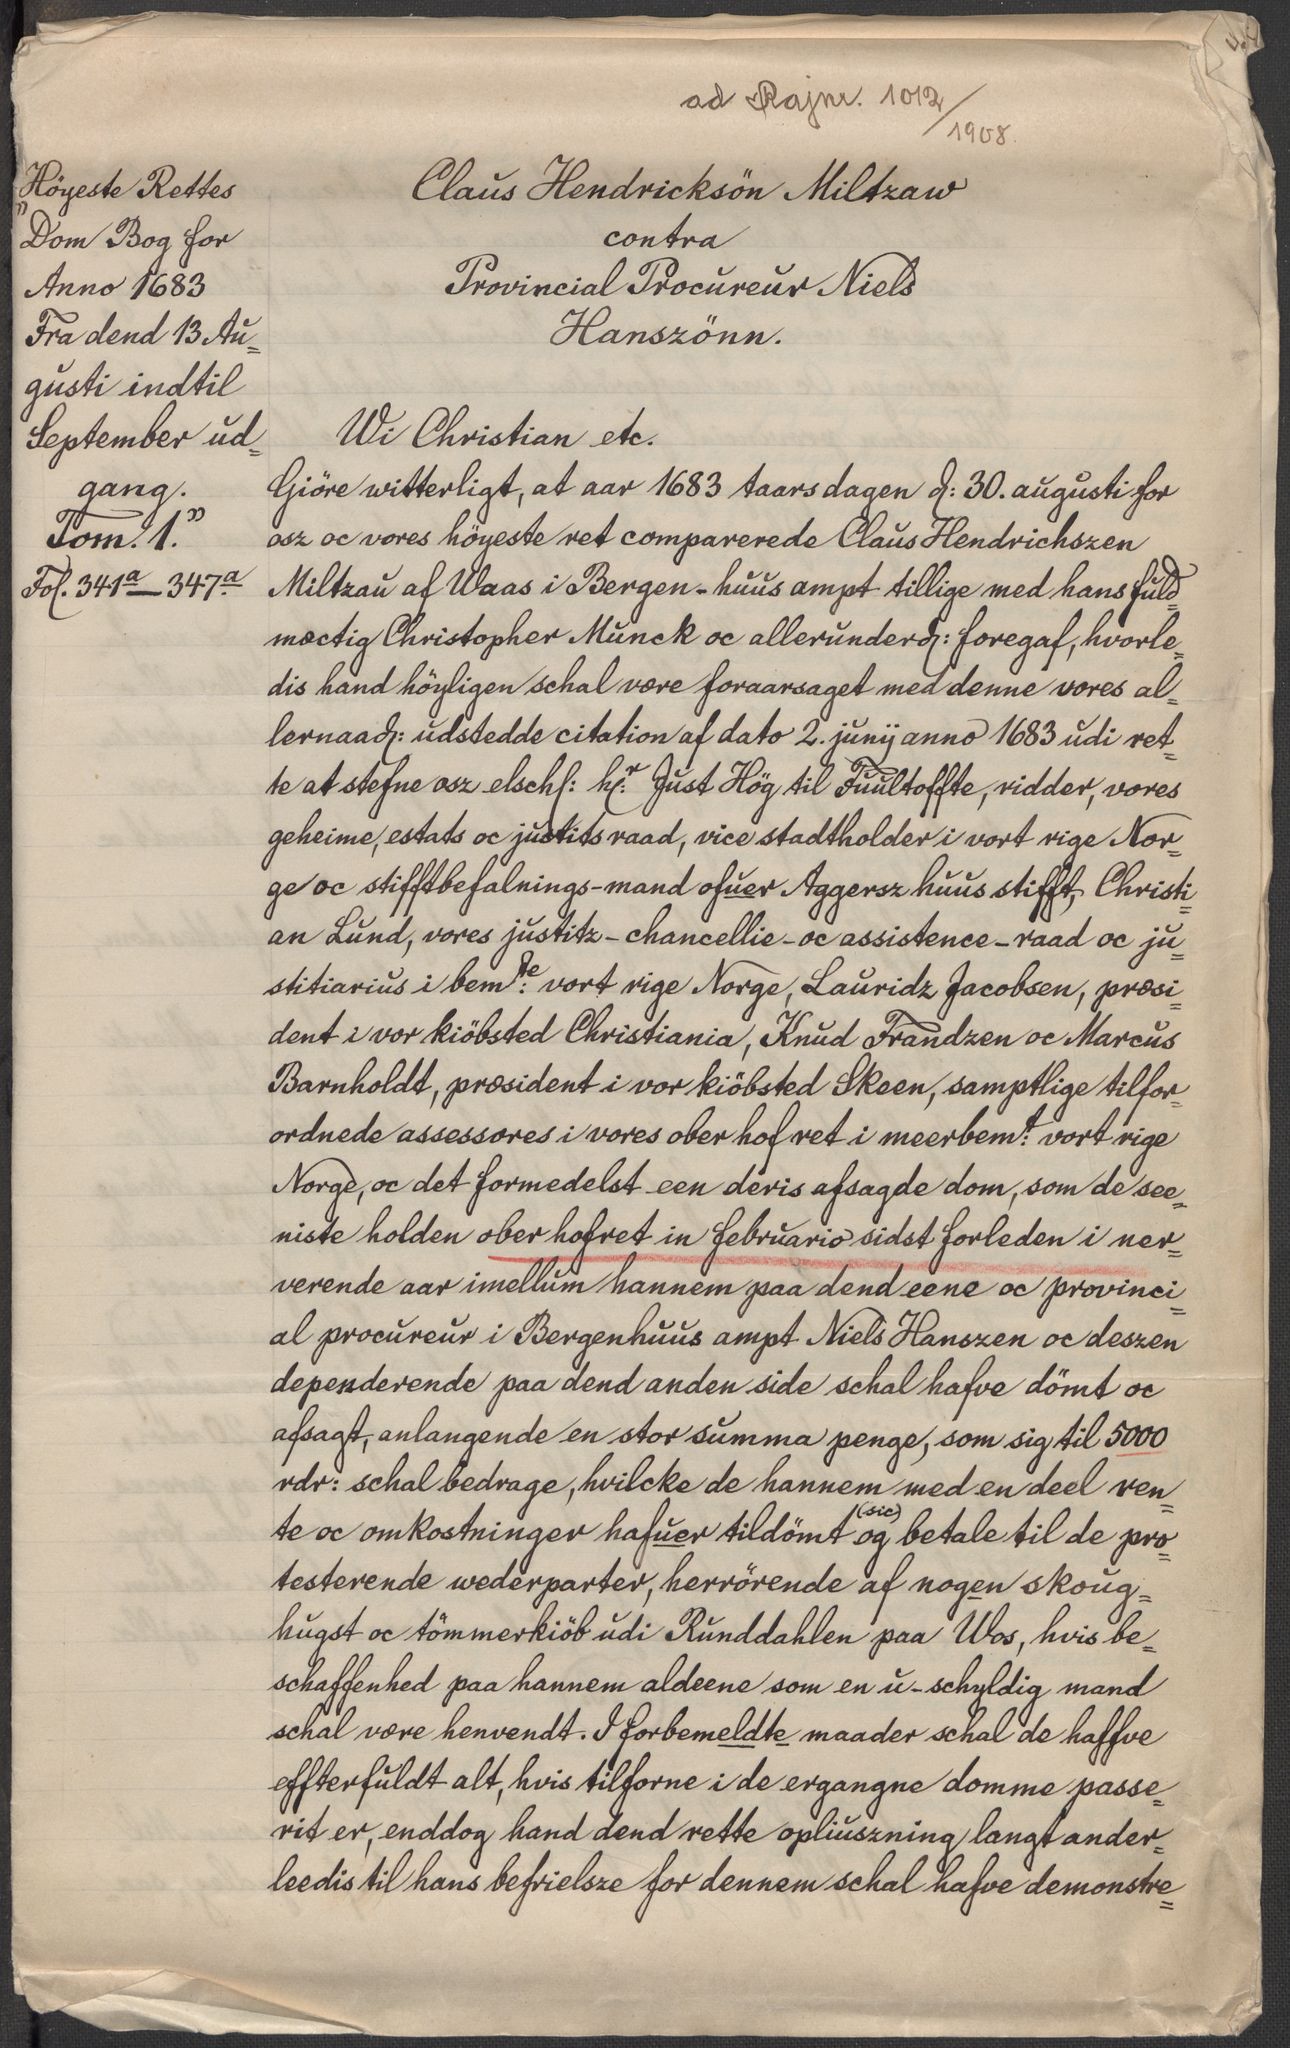 ad Rajnr. 1012/1908.
Höyeste Rettes
"Dom Bog for
Anno 1683
Fra dend 13 Au=
gusti indtil
September ud=
gang.
Tom. 1."
Fol. 341a — 347a
Claus Hendricksön Miltzaw
contra
Provincial Procureur Niels
Hanszönn.
Wi Christian etc.
Giöre witterligt, at aar 1683 taarsdagen d: 30. augusti for
osz oc vores höyeste ret comparerede Claus Hendrichszen
Miltzau af Waas i Bergen-huus ampt tillige med hans fuld
mæctig Christopher Munck oc allerunderd: foregaf, hvorle=
dis hand höyligen schal være foraarsaget med denne vores al=
lernaad: udstedde citation af dato 2. junij anno 1683 udi ret=
te at stefne osz elschl: hr. Just Hög til Fuultoffte, ridder, vores
geheime, estats oc justitsraad, vice stadtholder i vort rige Nor=
ge oc stifftbefalnings-mand ofuer Aggersz huus stifft, Christi=
an Lund, vores justitz-chancellie-oc assistence-raad oc ju=
stitiarius i bemte: vort rige Norge, Lauridz Jacobsen, præsi=
dent i vor kiöbsted Christiania, Knud Frandzen oc Marcus
Barnholdt, præsident i vor kiöbsted Skeen, samptlige tilfor=
ordnede assessores i vores ober hof ret i meerbemt: vort rige
Norge, oc det formedelst een deris afsagde dom, som de see=
niste holden ober hofret in februario sidst forleden i ner=
verende aar imellum hannem paa dend eene oc provinci=
al procureur i Bergenhuus ampt Niels Hanszen oc deszen
dependerende paa dend anden side schal hafve dömt oc
afsagt, anlangende en stor summa penge, som sig til 5000
rdr: schal bedrage, hvilcke de hannem med en deel ren=
te oc omkostninger hafuer tildömt og (sic) betale til de pro=
testerende wederparter, herrörende af nogen skoug=
hugst oc tömmerkiöb udi Runddahlen paa Wos, hvis be=
schaffenhed paa hannem aldeene som en u-schyldig mand
schal være henvendt. I forbemeldte maader schal de haffve
effterfuldt alt, hvis tilforne i de ergangne domme passe=
rit er, enddog hand dend rette opliuszning langt ander=
leedis til hans befrielsze for dennem schal hafve demonstre=